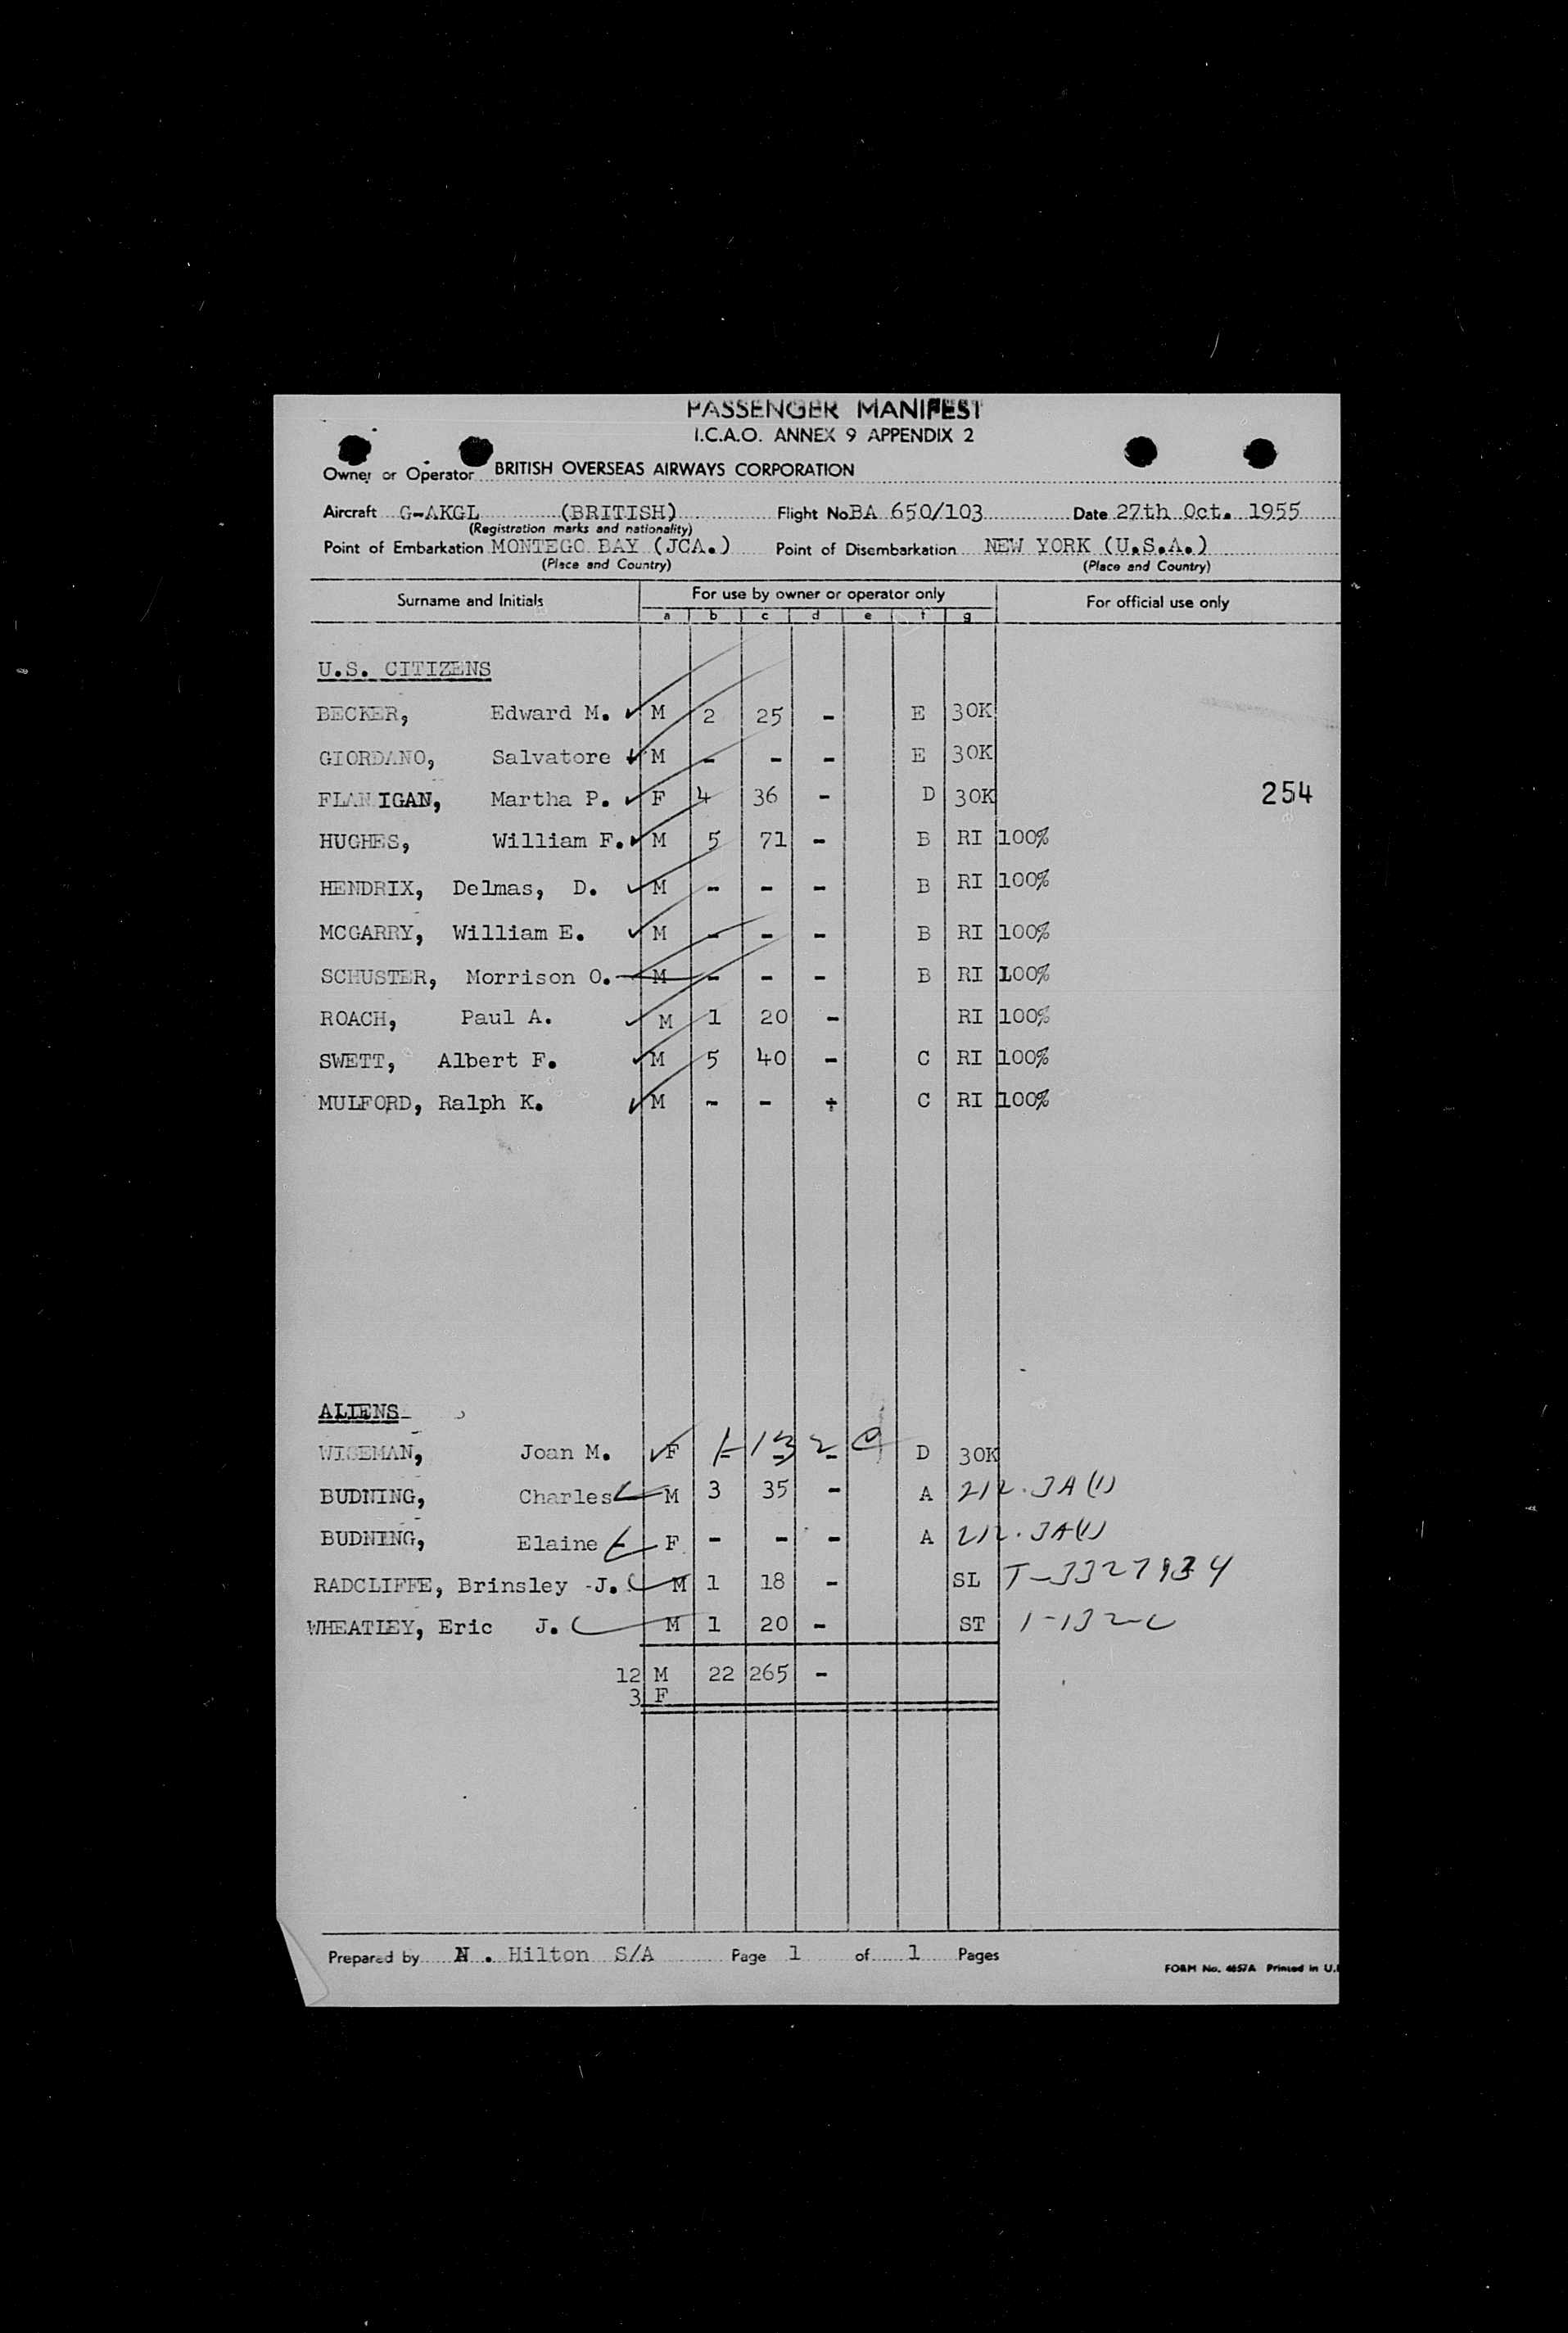 PASSENGER MANIFEST
I.C.A.O. ANNEX 9 APPENDIX 2
Owner or Operator BRITISH OVERSEAS AIRWAYS CORPORATION
Aircraft G-AKGL (BRITISH) Flight No. BA 650/103 Date 27th Oct. 1955
(Registration marks and nationality)
Point of Embarkation MONTEGO BAY (JCA.) Point of Disembarkation NEW YORK (U.S.A.)
(Place and Country) (Place and Country)
Surname and Initials For use by owner or operator only For official use only
a b c d e f g
U.S. CITIZENS
BECKER, Edward M. ✓ M 2 25 - E 30K
GIORDANO, Salvatore ✓ M - - - E 30K
FLANIGAN, Martha P. ✓ F 4 36 - D 30K 254
HUGHES, William F. ✓ M 5 71 - B RI 100%
HENDRIX, Delmas, D. ✓ M - - - B RI 100%
MCGARRY, William E. ✓ M - - - B RI 100%
SCHUSTER, Morrison O. M - - - B RI 100%
ROACH, Paul A. ✓ M 1 20 - RI 100%
SWETT, Albert F. ✓ M 5 40 - C RI 100%
MULFORD, Ralph K. ✓ M - - + C RI 100%
ALIENS
WISEMAN, Joan M. ✓ F - - - 1-132 C D 30K
BUDNING, Charles M 3 35 - A 212.3A(1)
BUDNING, Elaine F. - - - A 212.3A(1)
RADCLIFFE, Brinsley -J. M 1 18 - SL T-3327934
WHEATLEY, Eric J. M 1 20 - ST 1-132-C
12 M 22 265 -
3 F
Prepared by N. Hilton S/A Page 1 of 1 Pages
FORM No. 4657A Printed in U.